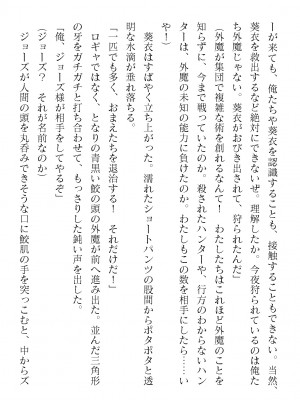 ーが来ても、俺たちや葵衣を認識することも、接触することもできない。当然、
葵衣を救出するなど絶対にできないぜ。理解したか。今夜狩られているのは俺た
ち外魔じゃない。葵衣がおびき出されて、狩られたんだ」
（外魔が集団で複雑な術を創れるなんて！　わたしたちはこれほど外魔のことを
知らずに、今まで戦っていたのか。殺されたハンターや、行方のわからないハン
ターは、外魔の未知の能力に負けたのか。わたしもこの数を相手にしたら……い
や！）
葵衣はすばやく立ち上がった。濡れたショートパンツの股間からポタポタと透
明な水滴が垂れ落ちる。
「一匹でも多く、おまえたちを退治する！　それだけだ！」
ロギャではなく、となりの青黒い鮫の頭の外魔が前へ進み出た。並んだ三角形
の牙をガチガチと打ち合わせて、もっさりした鈍い声を出した。
「俺、ジョーズ様が相手をしてやるぞ」
（ジョーズ？　それが名前なのか）
ジョーズが人間の頭を丸呑みできそうな口に鮫肌の手を突っこむと、中からズ